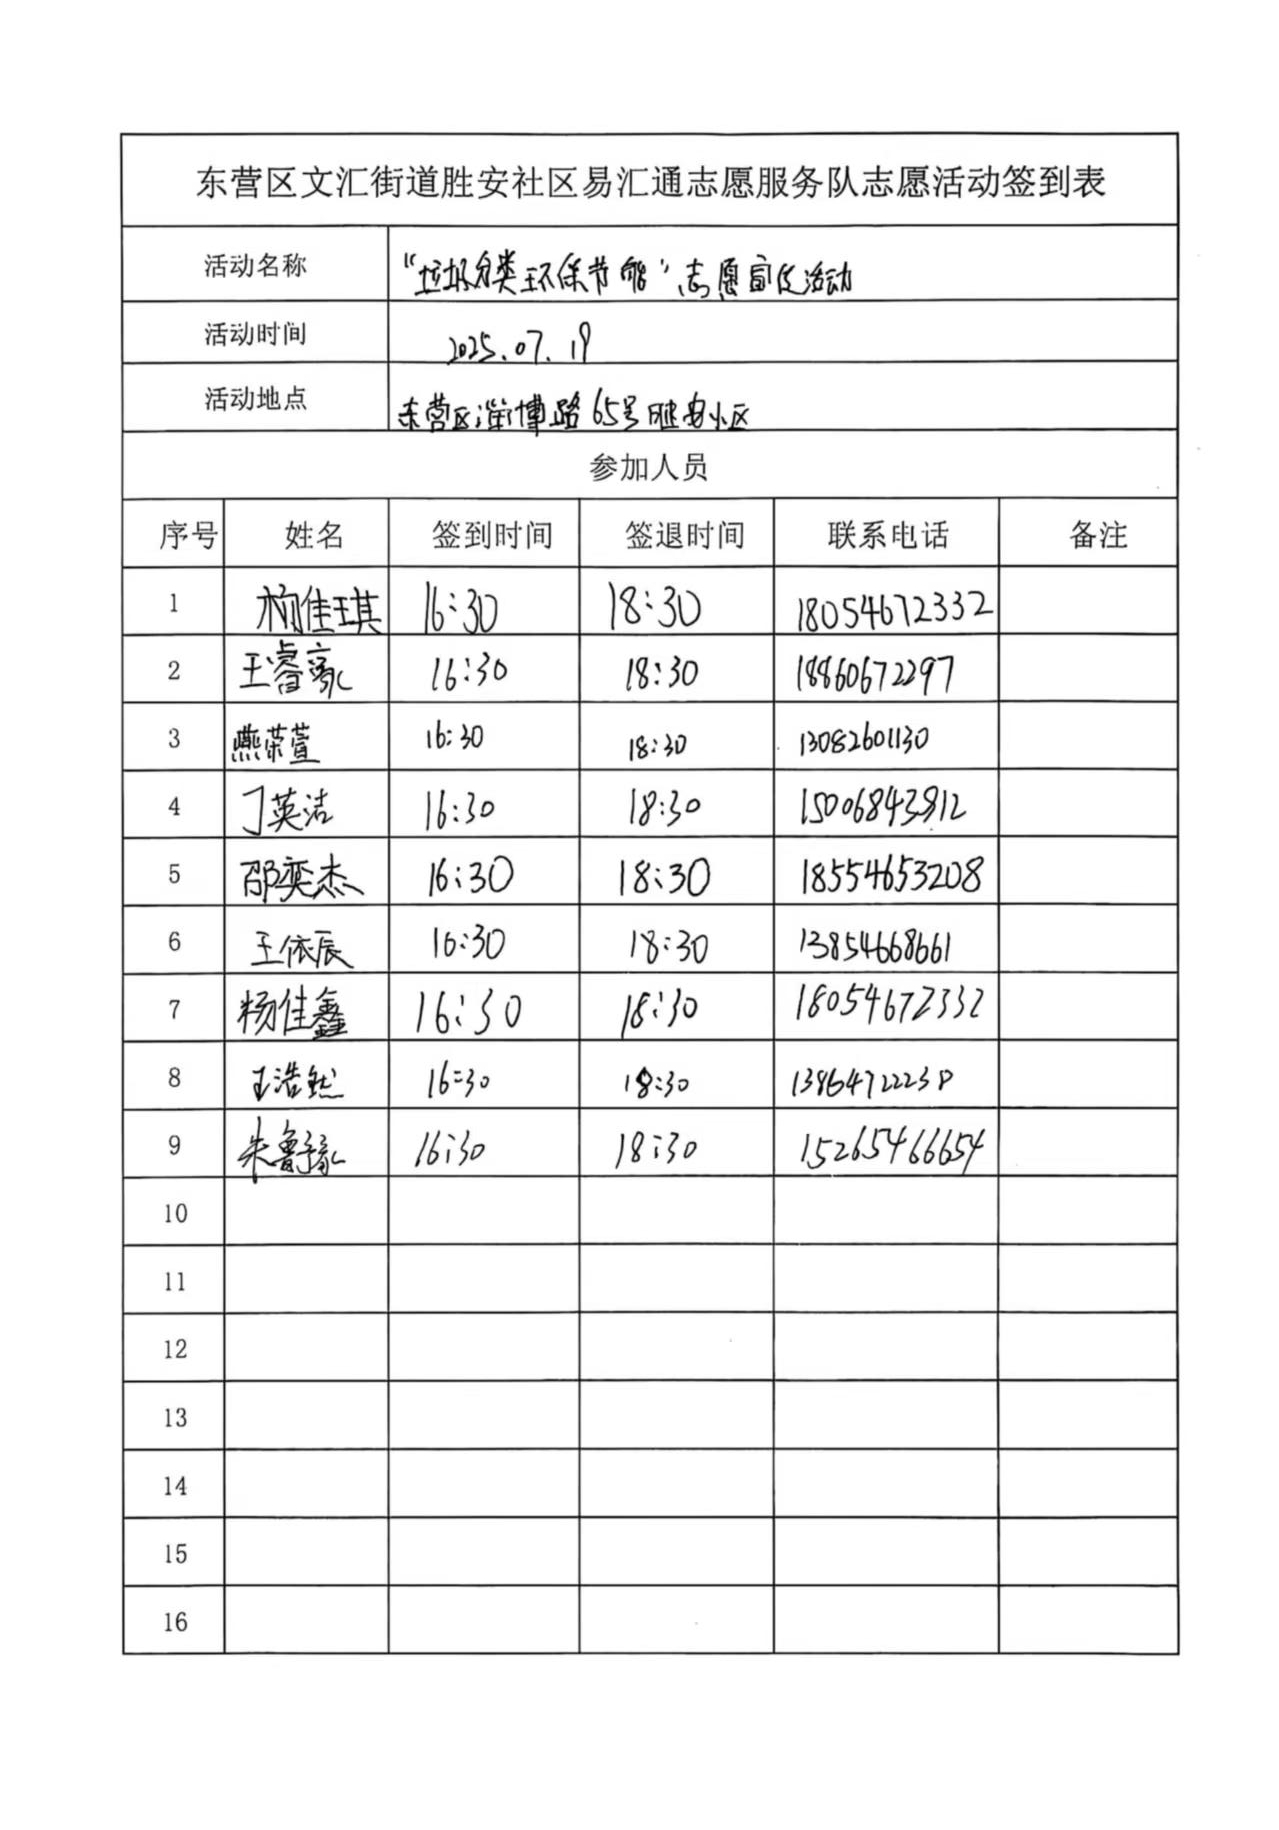 东营区文汇街道胜安社区易汇通志愿服务队志愿活动签到表
活动名称 “垃圾分类环保节能”志愿宣传活动
活动时间 2025.07.19
活动地点 东营区淄博路65号胜安小区
参加人员
序号 姓名 签到时间 签退时间 联系电话 备注
1 杨佳琪 16:30 18:30 18054672332
2 王睿豪 16:30 18:30 18860672297
3 燕荣萱 16:30 18:30 13082601130
4 丁英洁 16:30 18:30 15006843912
5 邵奕杰 16:30 18:30 18554653208
6 王依辰 16:30 18:30 13854668661
7 杨佳鑫 16:30 18:30 18054672332
8 王浩然 16:30 18:30 13864722238
9 朱鲁豫 16:30 18:30 15265466654
10
11
12
13
14
15
16